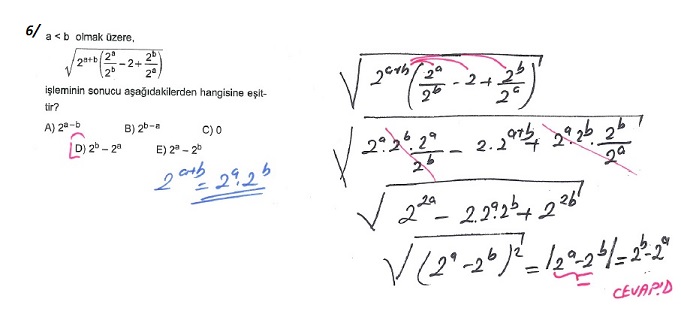 6/ a < b olmak üzere,
√(2^(a+b)(2^a/2^b − 2 + 2^b/2^a))
işleminin sonucu aşağıdakilerden hangisine eşit-
tir?
A) 2^(a−b) B) 2^(b−a) C) 0
D) 2^b − 2^a E) 2^a − 2^b
2^(a+b) = 2^a . 2^b
√(2^(a+b)(2^a/2^b − 2 + 2^b/2^a))
√(2^a . 2^b . 2^a/2^b − 2 . 2^(a+b) + 2^a . 2^b . 2^b/2^a)
√(2^(2a) − 2 . 2^a . 2^b + 2^(2b))
√((2^a − 2^b)^2) = |2^a − 2^b| = 2^b − 2^a
CEVAP:D